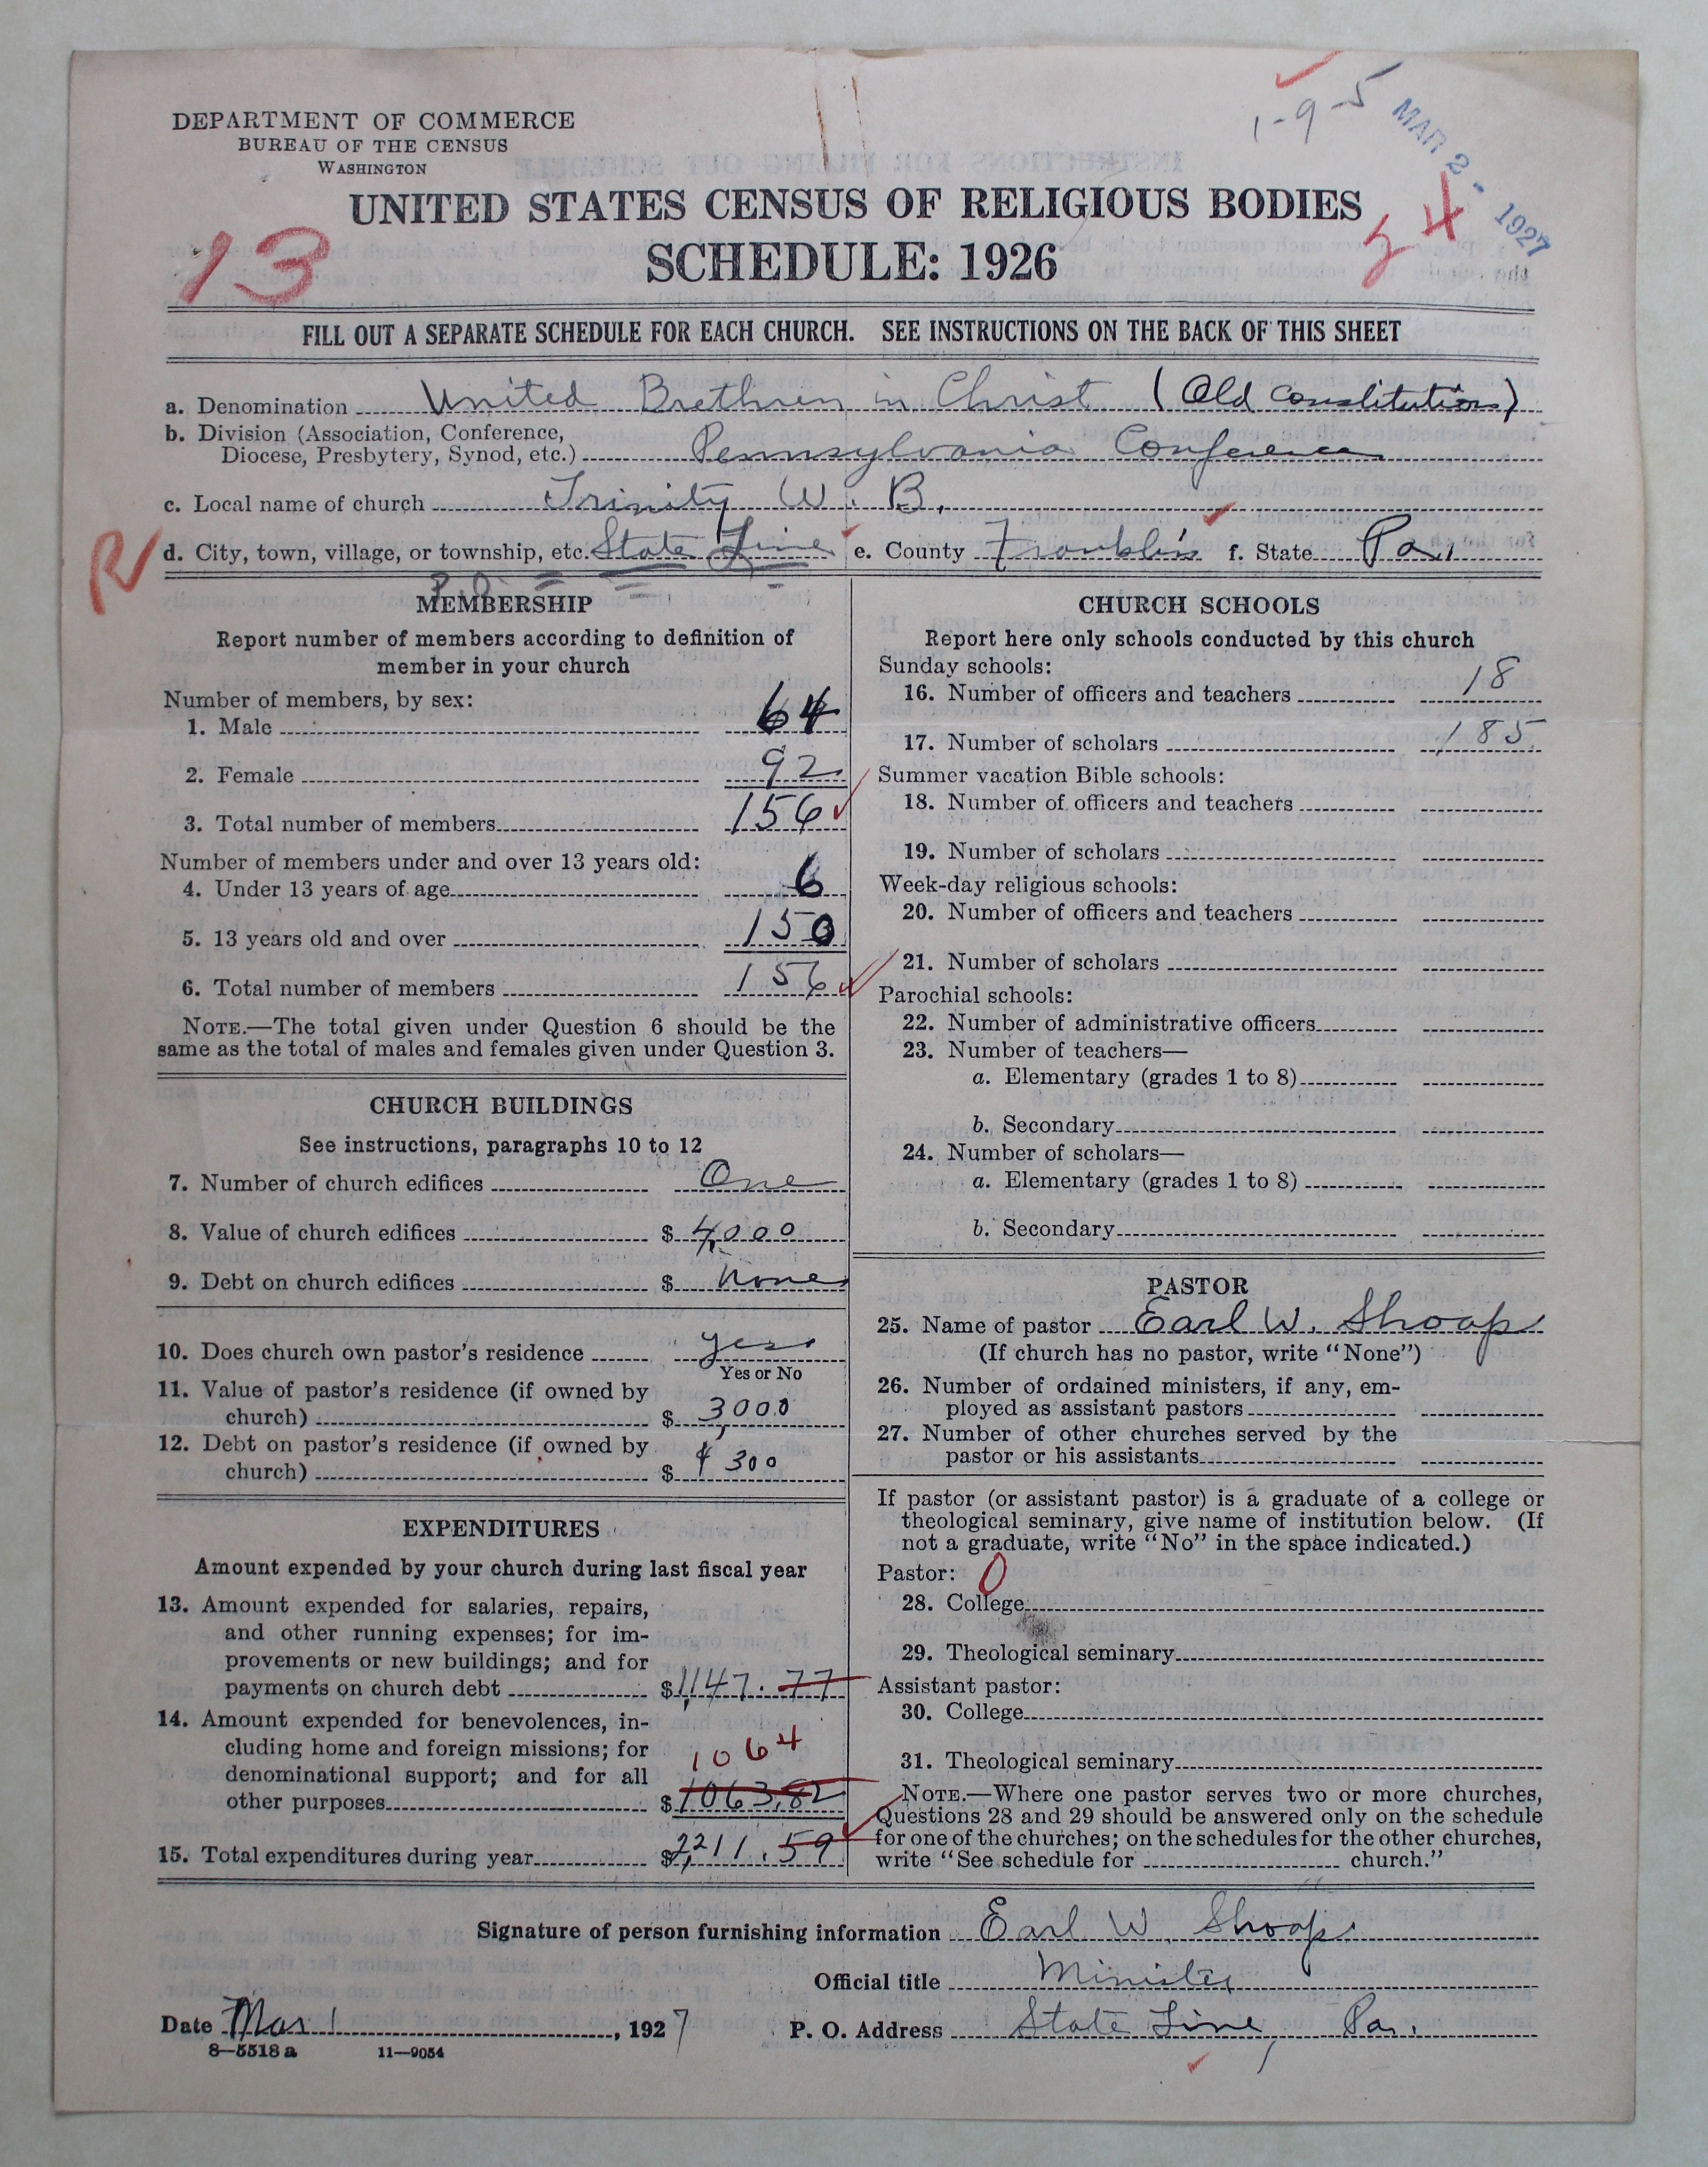 1-9-5
MAR 2 - 1927
DEPARTMENT OF COMMERCE
BUREAU OF THE CENSUS
WASHINGTON
UNITED STATES CENSUS OF RELIGIOUS BODIES
SCHEDULE: 1926
13
54
FILL OUT A SEPARATE SCHEDULE FOR EACH CHURCH. SEE INSTRUCTIONS ON THE BACK OF THIS SHEET
a. Denomination United Brethren in Christ (Old Constitution)
b. Division (Association, Conference,
Diocese, Presbytery, Synod, etc.) Pennsylvania Conference
c. Local name of church Trinity U. B.
R d. City, town, village, or township, etc. State Line e. County Franklin f. State Pa.
P.O.
MEMBERSHIP
Report number of members according to definition of
member in your church
Number of members, by sex:
1. Male 64
2. Female 92
3. Total number of members 156
Number of members under and over 13 years old:
4. Under 13 years of age 6
5. 13 years old and over 150
6. Total number of members 156
NOTE.—The total given under Question 6 should be the
same as the total of males and females given under Question 3.
CHURCH BUILDINGS
See instructions, paragraphs 10 to 12
7. Number of church edifices One
8. Value of church edifices $ 4,000
9. Debt on church edifices $ None
10. Does church own pastor's residence yes
Yes or No
11. Value of pastor's residence (if owned by
church) $ 3,000
12. Debt on pastor's residence (if owned by
church) $ $ 300
EXPENDITURES
Amount expended by your church during last fiscal year
13. Amount expended for salaries, repairs,
and other running expenses; for im-
provements or new buildings; and for
payments on church debt $ 1,147.77
14. Amount expended for benevolences, in-
cluding home and foreign missions; for
1064
denominational support; and for all
other purposes $ 1063.82
15. Total expenditures during year $ 2,211.59
CHURCH SCHOOLS
Report here only schools conducted by this church
Sunday schools:
16. Number of officers and teachers 18
17. Number of scholars 185
Summer vacation Bible schools:
18. Number of officers and teachers
19. Number of scholars
Week-day religious schools:
20. Number of officers and teachers
21. Number of scholars
Parochial schools:
22. Number of administrative officers
23. Number of teachers—
a. Elementary (grades 1 to 8)
b. Secondary
24. Number of scholars—
a. Elementary (grades 1 to 8)
b. Secondary
PASTOR
25. Name of pastor Earl W. Shoop
(If church has no pastor, write "None")
26. Number of ordained ministers, if any, em-
ployed as assistant pastors
27. Number of other churches served by the
pastor or his assistants
If pastor (or assistant pastor) is a graduate of a college or
theological seminary, give name of institution below. (If
not a graduate, write "No" in the space indicated.)
Pastor: 0
28. College
29. Theological seminary
Assistant pastor:
30. College
31. Theological seminary
NOTE.—Where one pastor serves two or more churches,
Questions 28 and 29 should be answered only on the schedule
for one of the churches; on the schedules for the other churches,
write "See schedule for church."
Signature of person furnishing information Earl W. Shoop
Official title Minister
Date Mar 1, 1927 P. O. Address State Line, Pa.
8—5518 a 11—9054